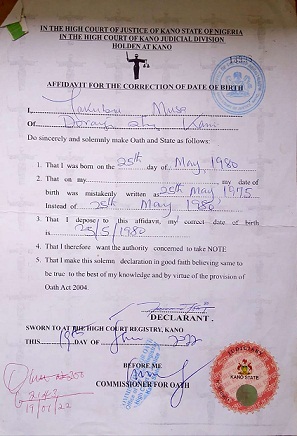 IN THE HIGH COURT OF JUSTICE OF KANO STATE OF NIGERIA
IN THE HIGH COURT OF KANO JUDICIAL DIVISION
HOLDEN AT KANO
AFFIDAVIT FOR THE CORRECTION OF DATE OF BIRTH
I, Musa
Of Kano
Do sincerely and solemnly make Oath and State as follows:
1. That I was born on the 25th day of May 1980
2. That on my my date of
birth was mistakenly written as 25th May 1975
Instead of 25th May 1980
3. That I depose to this affidavit, my correct date of birth
is 25/5/1980
4. That I therefore want the authority concerned to take NOTE
5. That I make this solemn declaration in good faith believing same to
be true to the best of my knowledge and by virtue of the provision of
Oath Act 2004
DECLARANT.
SWORN TO AT THE HIGH COURT REGISTRY, KANO
THIS DAY OF
BEFORE ME
COMMISSIONER FOR OATH
JUDICIARY
KANO STATE